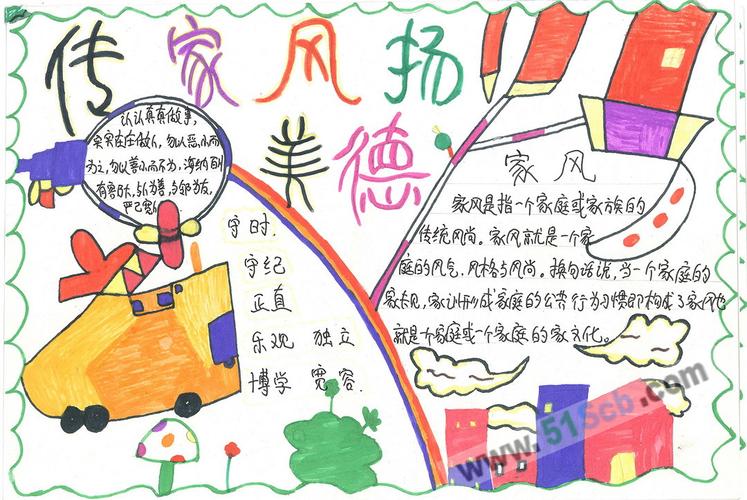 传家风扬
美德
认认真真做事,
实实在在做人,勿以恶小而
为之,勿以善小而不为,海纳百川
有容乃大,与人为善,
严己宽人
守时.
守纪
正直
乐观 独立
博学 宽容.
家风
家风是指一个家庭或家族的
传统风尚。家风就是一个家
庭的风气,风格与风尚。换句话说,当一个家庭的
家规,家训形成家庭的公共行为习惯即构成了家风也
就是个家庭或一个家庭的家文化。
www.51Scb.com